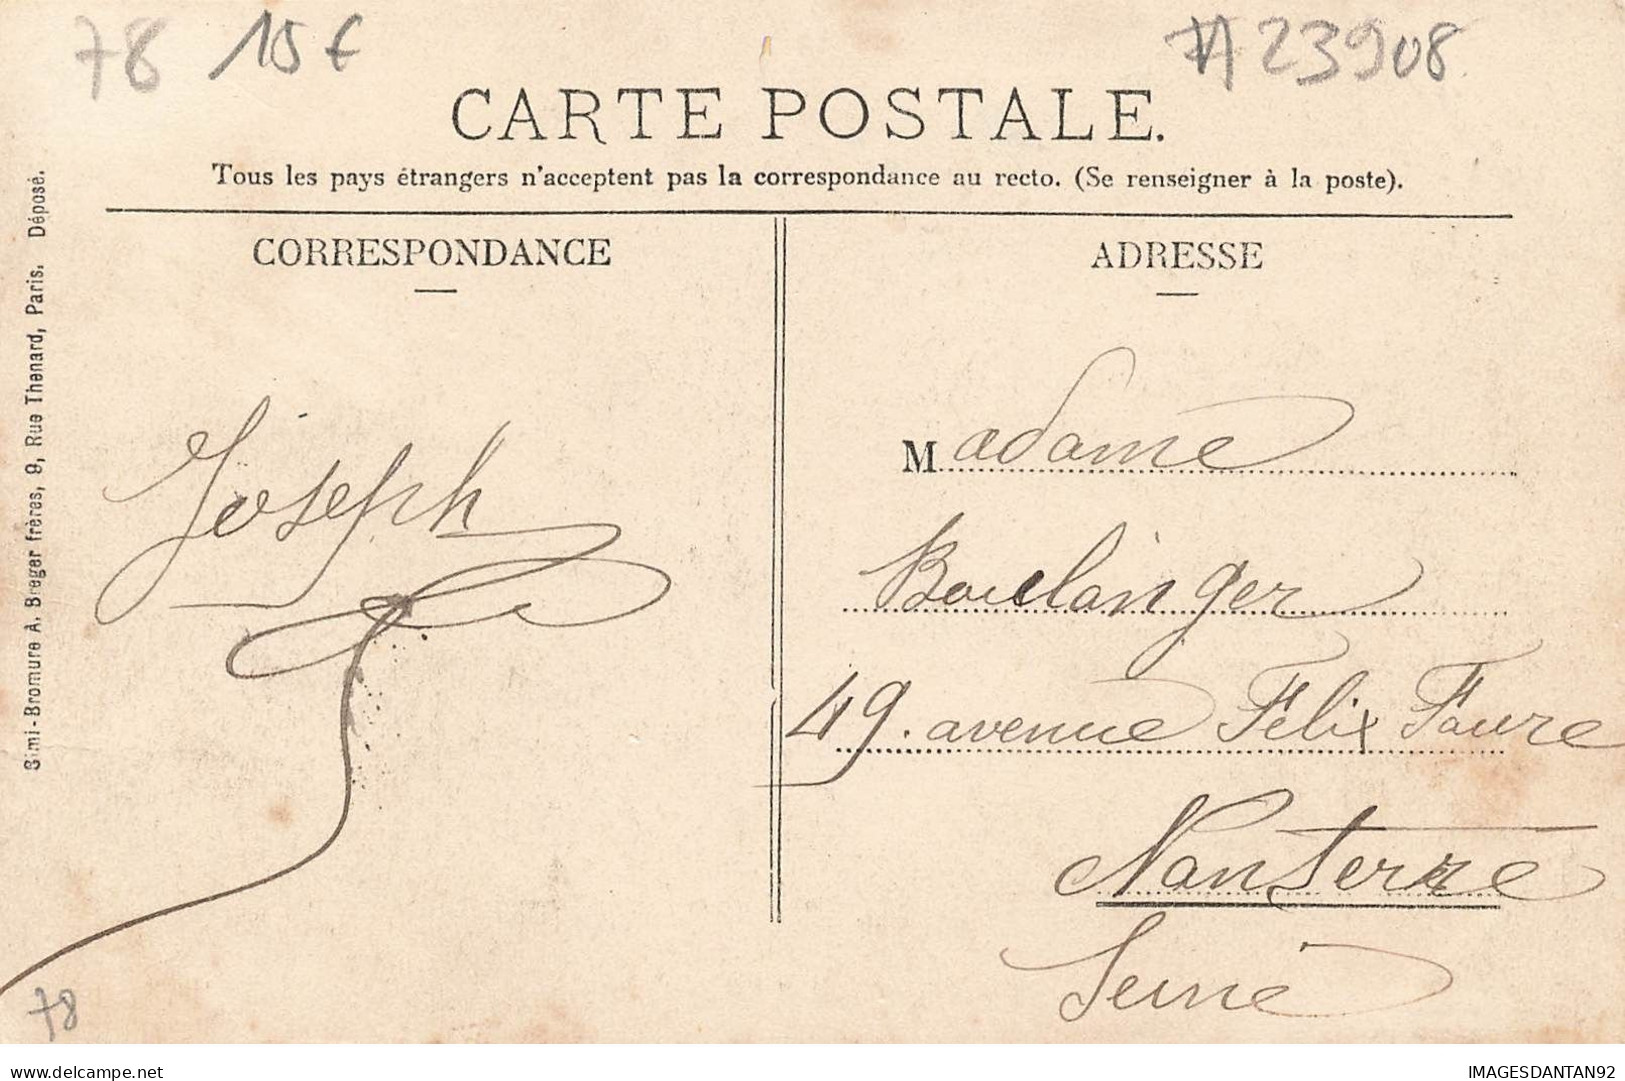 78 15€
#23908
CARTE POSTALE.
Tous les pays étrangers n'acceptent pas la correspondance au recto. (Se renseigner à la poste).
Simi-Bromure A. Breger frères, 9, Rue Thenard, Paris. Déposé.
CORRESPONDANCE
Joseph
78
ADRESSE
Madame
Boulanger
49. avenue Félix Faure
Nanterre
Seine
www.delcampe.net
IMAGESDANTAN92